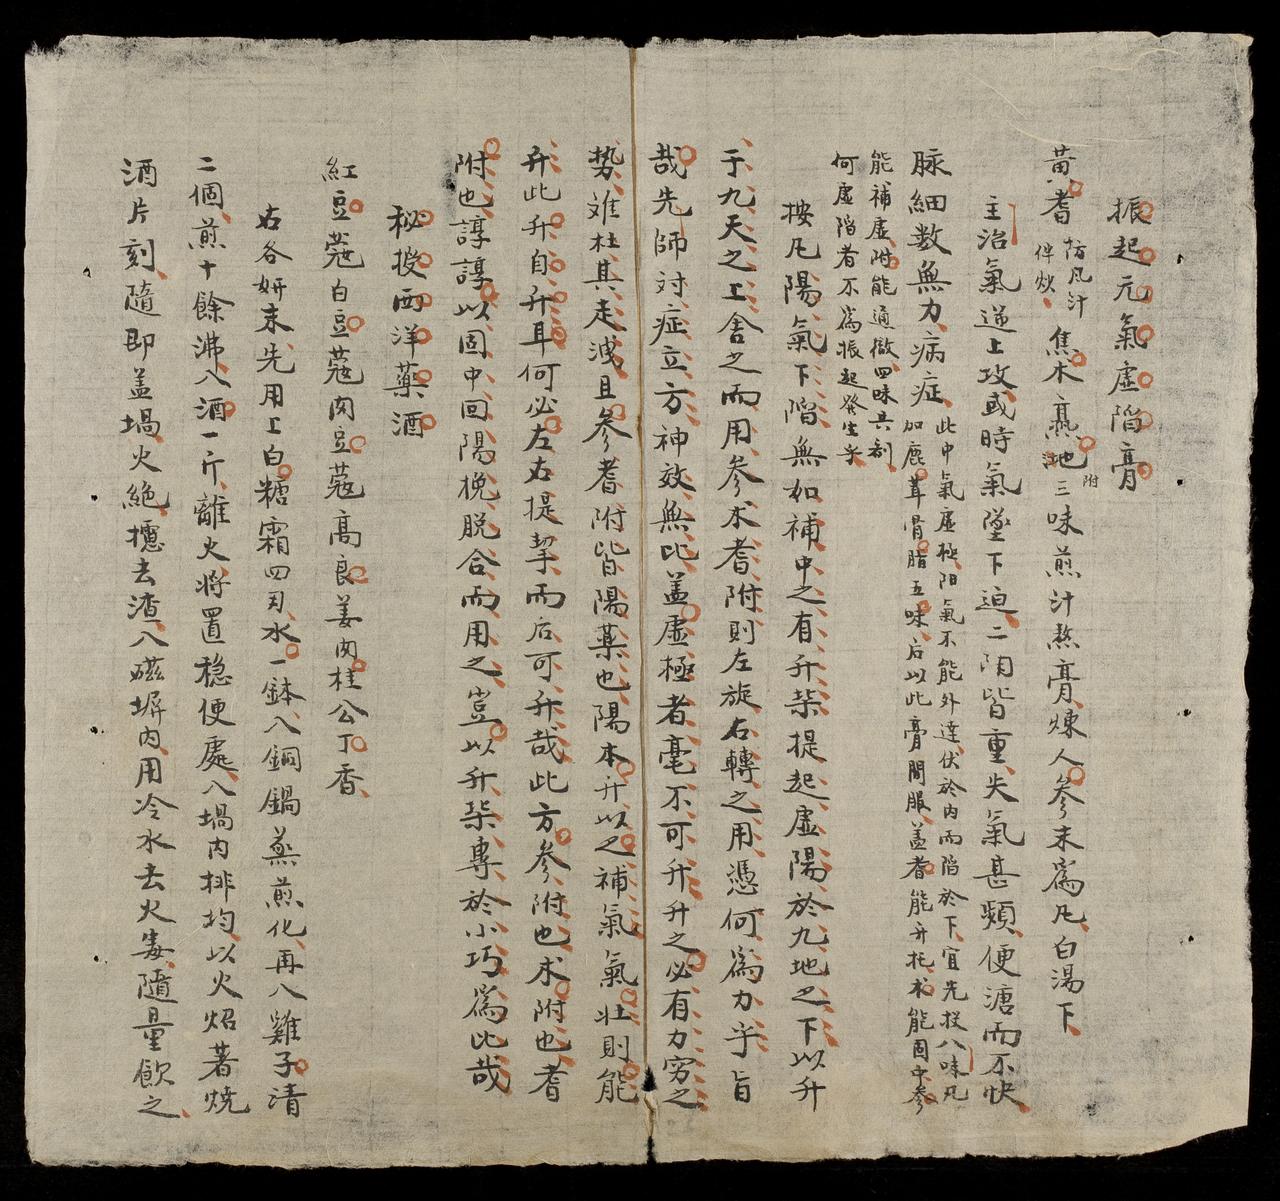 振起元氣虛陷膏
黄耆防风汁伴炒焦术熟地附三味煎汁熬膏煉人參末爲凡白湯下
主治氣逆上攻或時氣墜下迫二阴皆重失氣甚頻便溏而不快
脉細数無力病症此中氣虛極阳氣不能外達伏於内而陷於下宜先投八味凡
加鹿茸骨脂五味后以此膏間服盖耆能升托术能固中參
能補虛附能通徹四味共剤
何虛陷者不爲振起發生乎
按凡陽氣下陷無如補中之有升柴提起虛陽於九地之下以升
于九天之上舍之而用參术耆附則左旋右轉之用憑何爲力乎旨
哉先師対症立方神效無比盖虛極者毫不可升升之必有力穷之
势难杜其走洩且參耆附皆陽薬也陽本升以之補氣氣壮則能
升此升自升耳何必左右提挈而后可升哉此方參附也术附也耆
附也諄諄以固中回陽挽脱合而用之豈以升柴專於小巧爲此哉
秘授西洋藥酒
紅豆蔻白豆蔻肉豆蔻高良姜肉桂公丁香
右各妍末先用上白糖霜四刃水一鉢入銅鍋蒸煎化再入雞子清
二個煎十餘沸入酒一斤離火将置穏便處入堝内排均以火炤著焼
酒片刻隨即盖堝火絶攄去渣入磁塀内用冷水去火毒隨量飲之